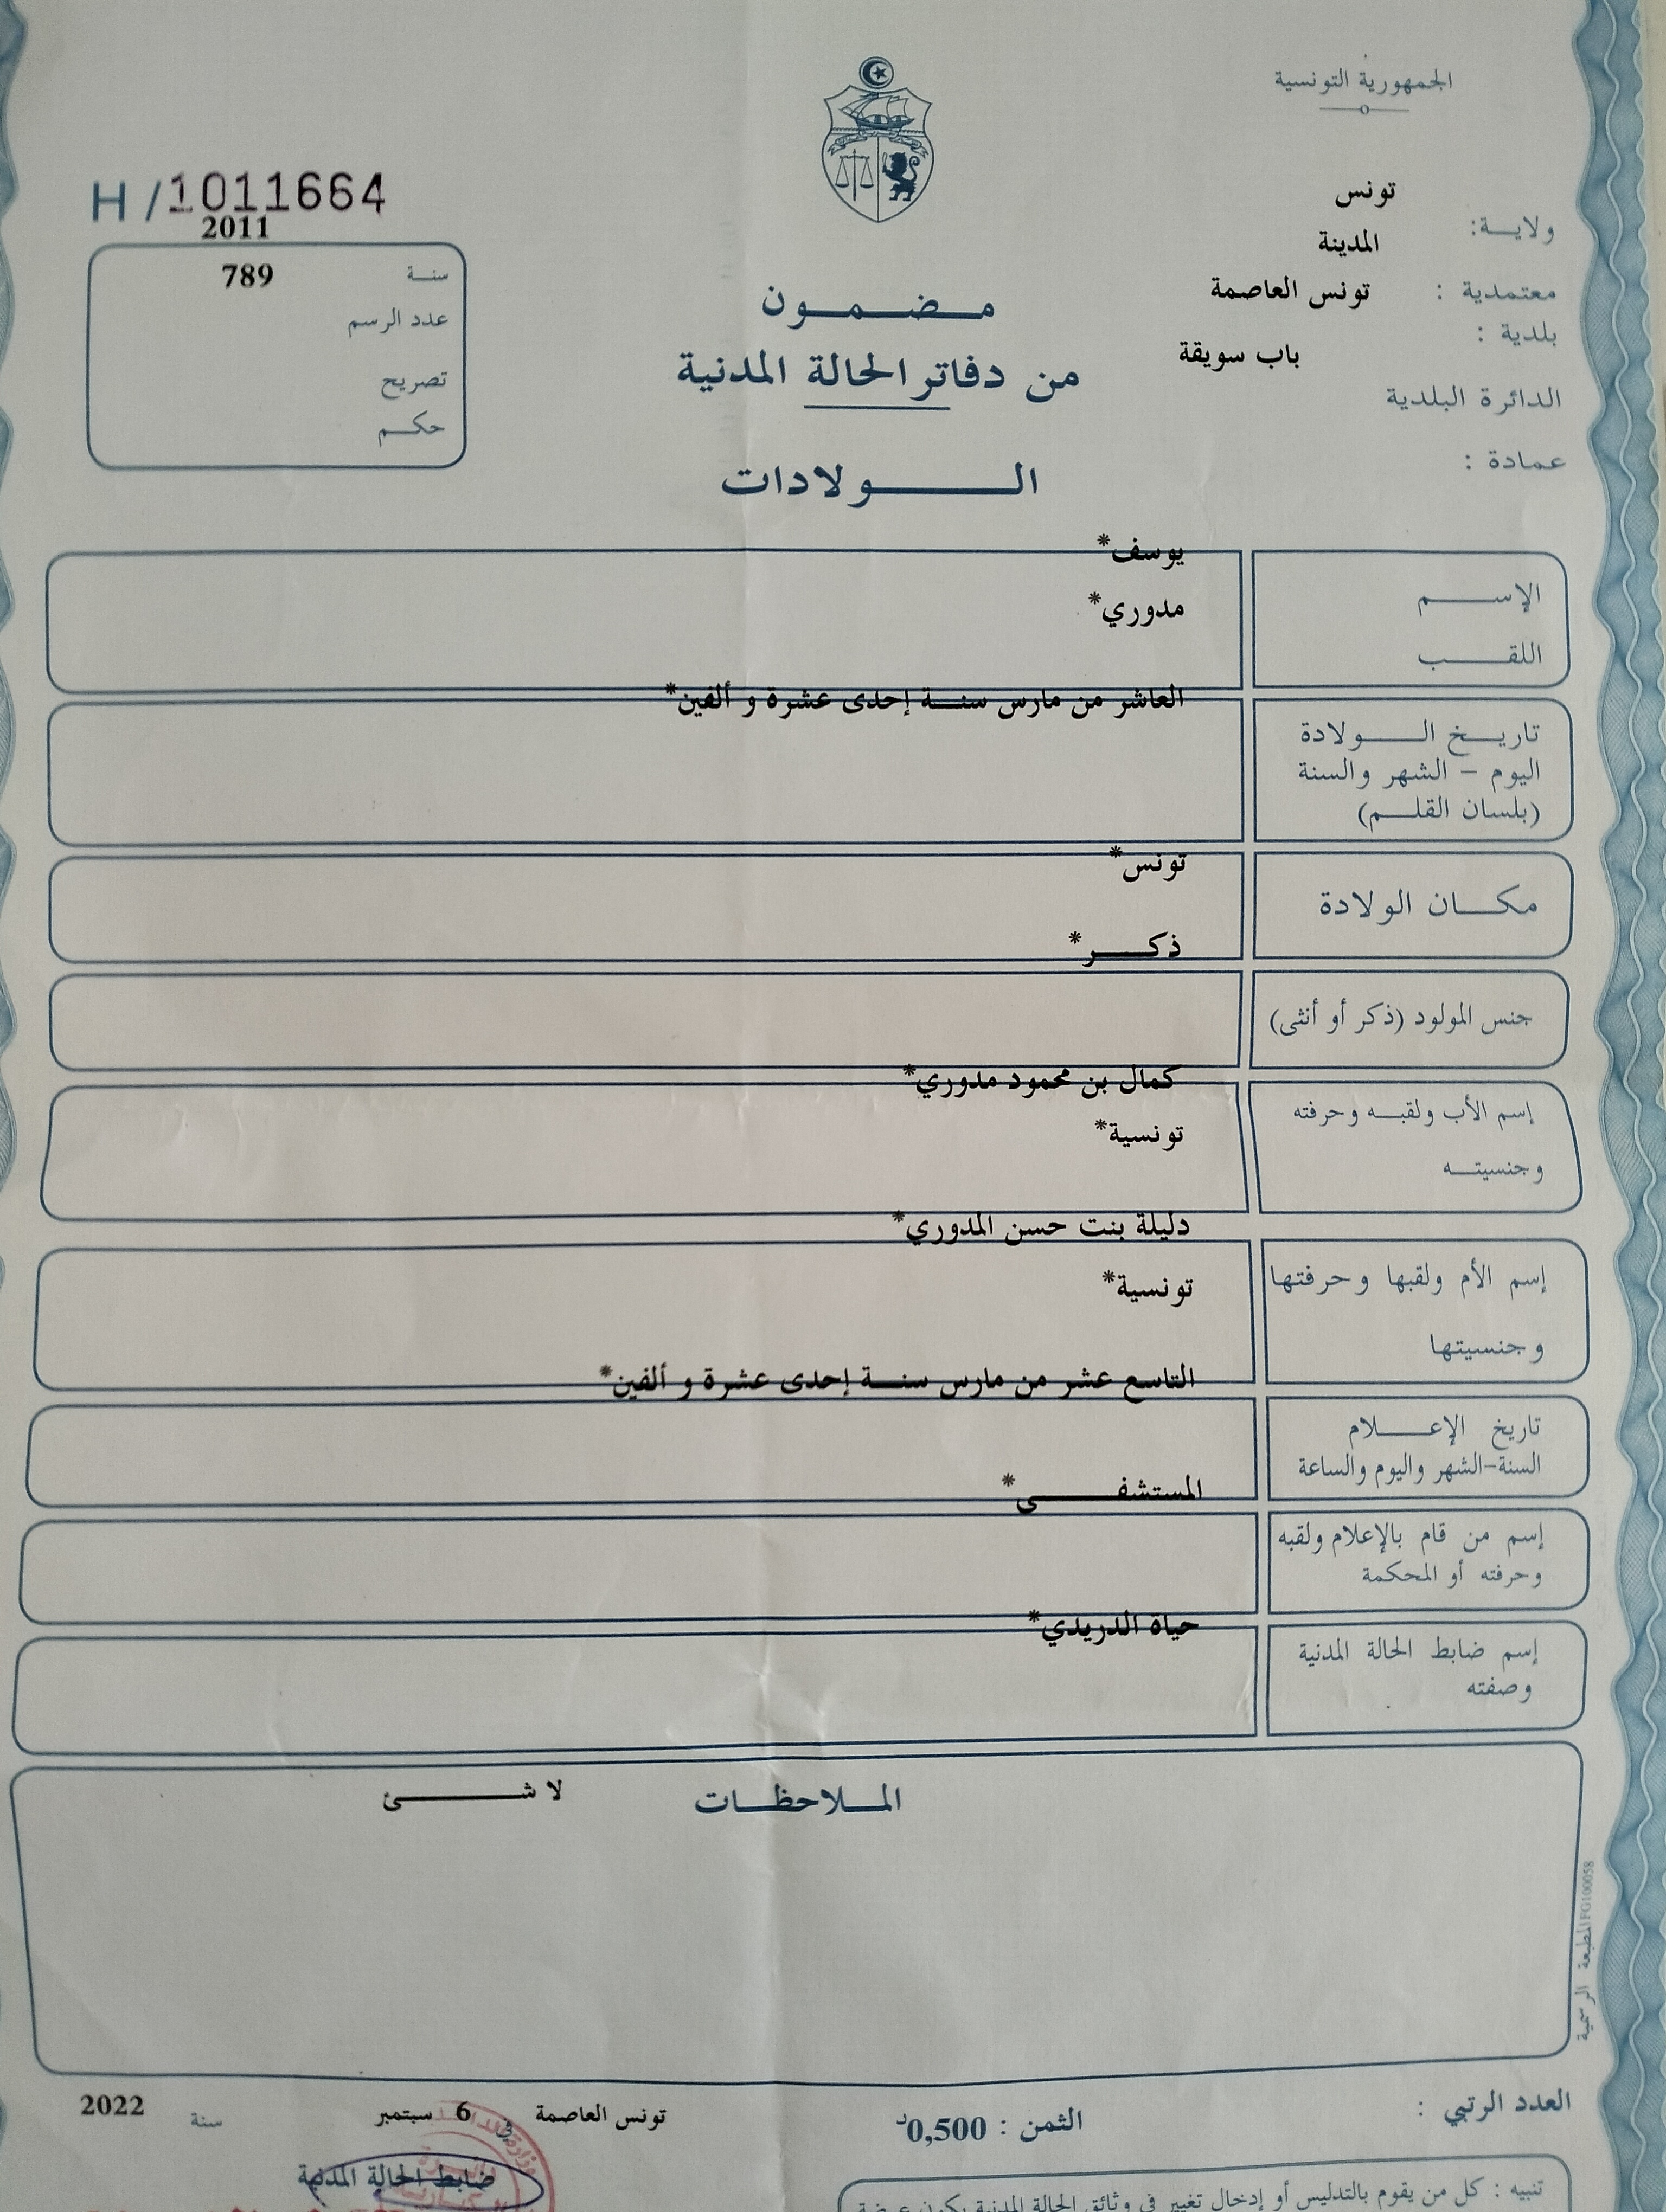 الجمهورية التونسية
H/1011664
2011
تونس
ولاية:
المدينة
معتمدية : تونس العاصمة
بلدية :
باب سويقة
الدائرة البلدية
عمادة :
سنة 789
عدد الرسم
تصريح
حكم
مضمون
من دفاتر الحالة المدنية
الولادات
يوسف*
الإسم
مدوري*
اللقب
العاشر من مارس سنة إحدى عشرة و ألفين*
تاريخ الولادة
اليوم – الشهر والسنة
(بلسان القلم)
تونس*
مكان الولادة
ذكر*
جنس المولود (ذكر أو أنثى)
كمال بن محمود مدوري*
إسم الأب ولقبه وحرفته
تونسية*
وجنسيته
دليلة بنت حسن المدوري*
إسم الأم ولقبها وحرفتها
تونسية*
وجنسيتها
التاسع عشر من مارس سنة إحدى عشرة و ألفين*
تاريخ الإعلام
السنة-الشهر واليوم والساعة
المستشفى*
إسم من قام بالإعلام ولقبه
وحرفته أو المحكمة
حياة الدريدي*
إسم ضابط الحالة المدنية
وصفته
الملاحظات لا شئ
المطبعة الرسمية IFG100058
العدد الرتبي :
الثمن : 0,500د
تونس العاصمة في 6 سبتمبر سنة 2022
ضابط الحالة المدنية
تنبيه : كل من يقوم بالتدليس أو إدخال تغيير في وثائق الحالة المدنية يكون عرضة